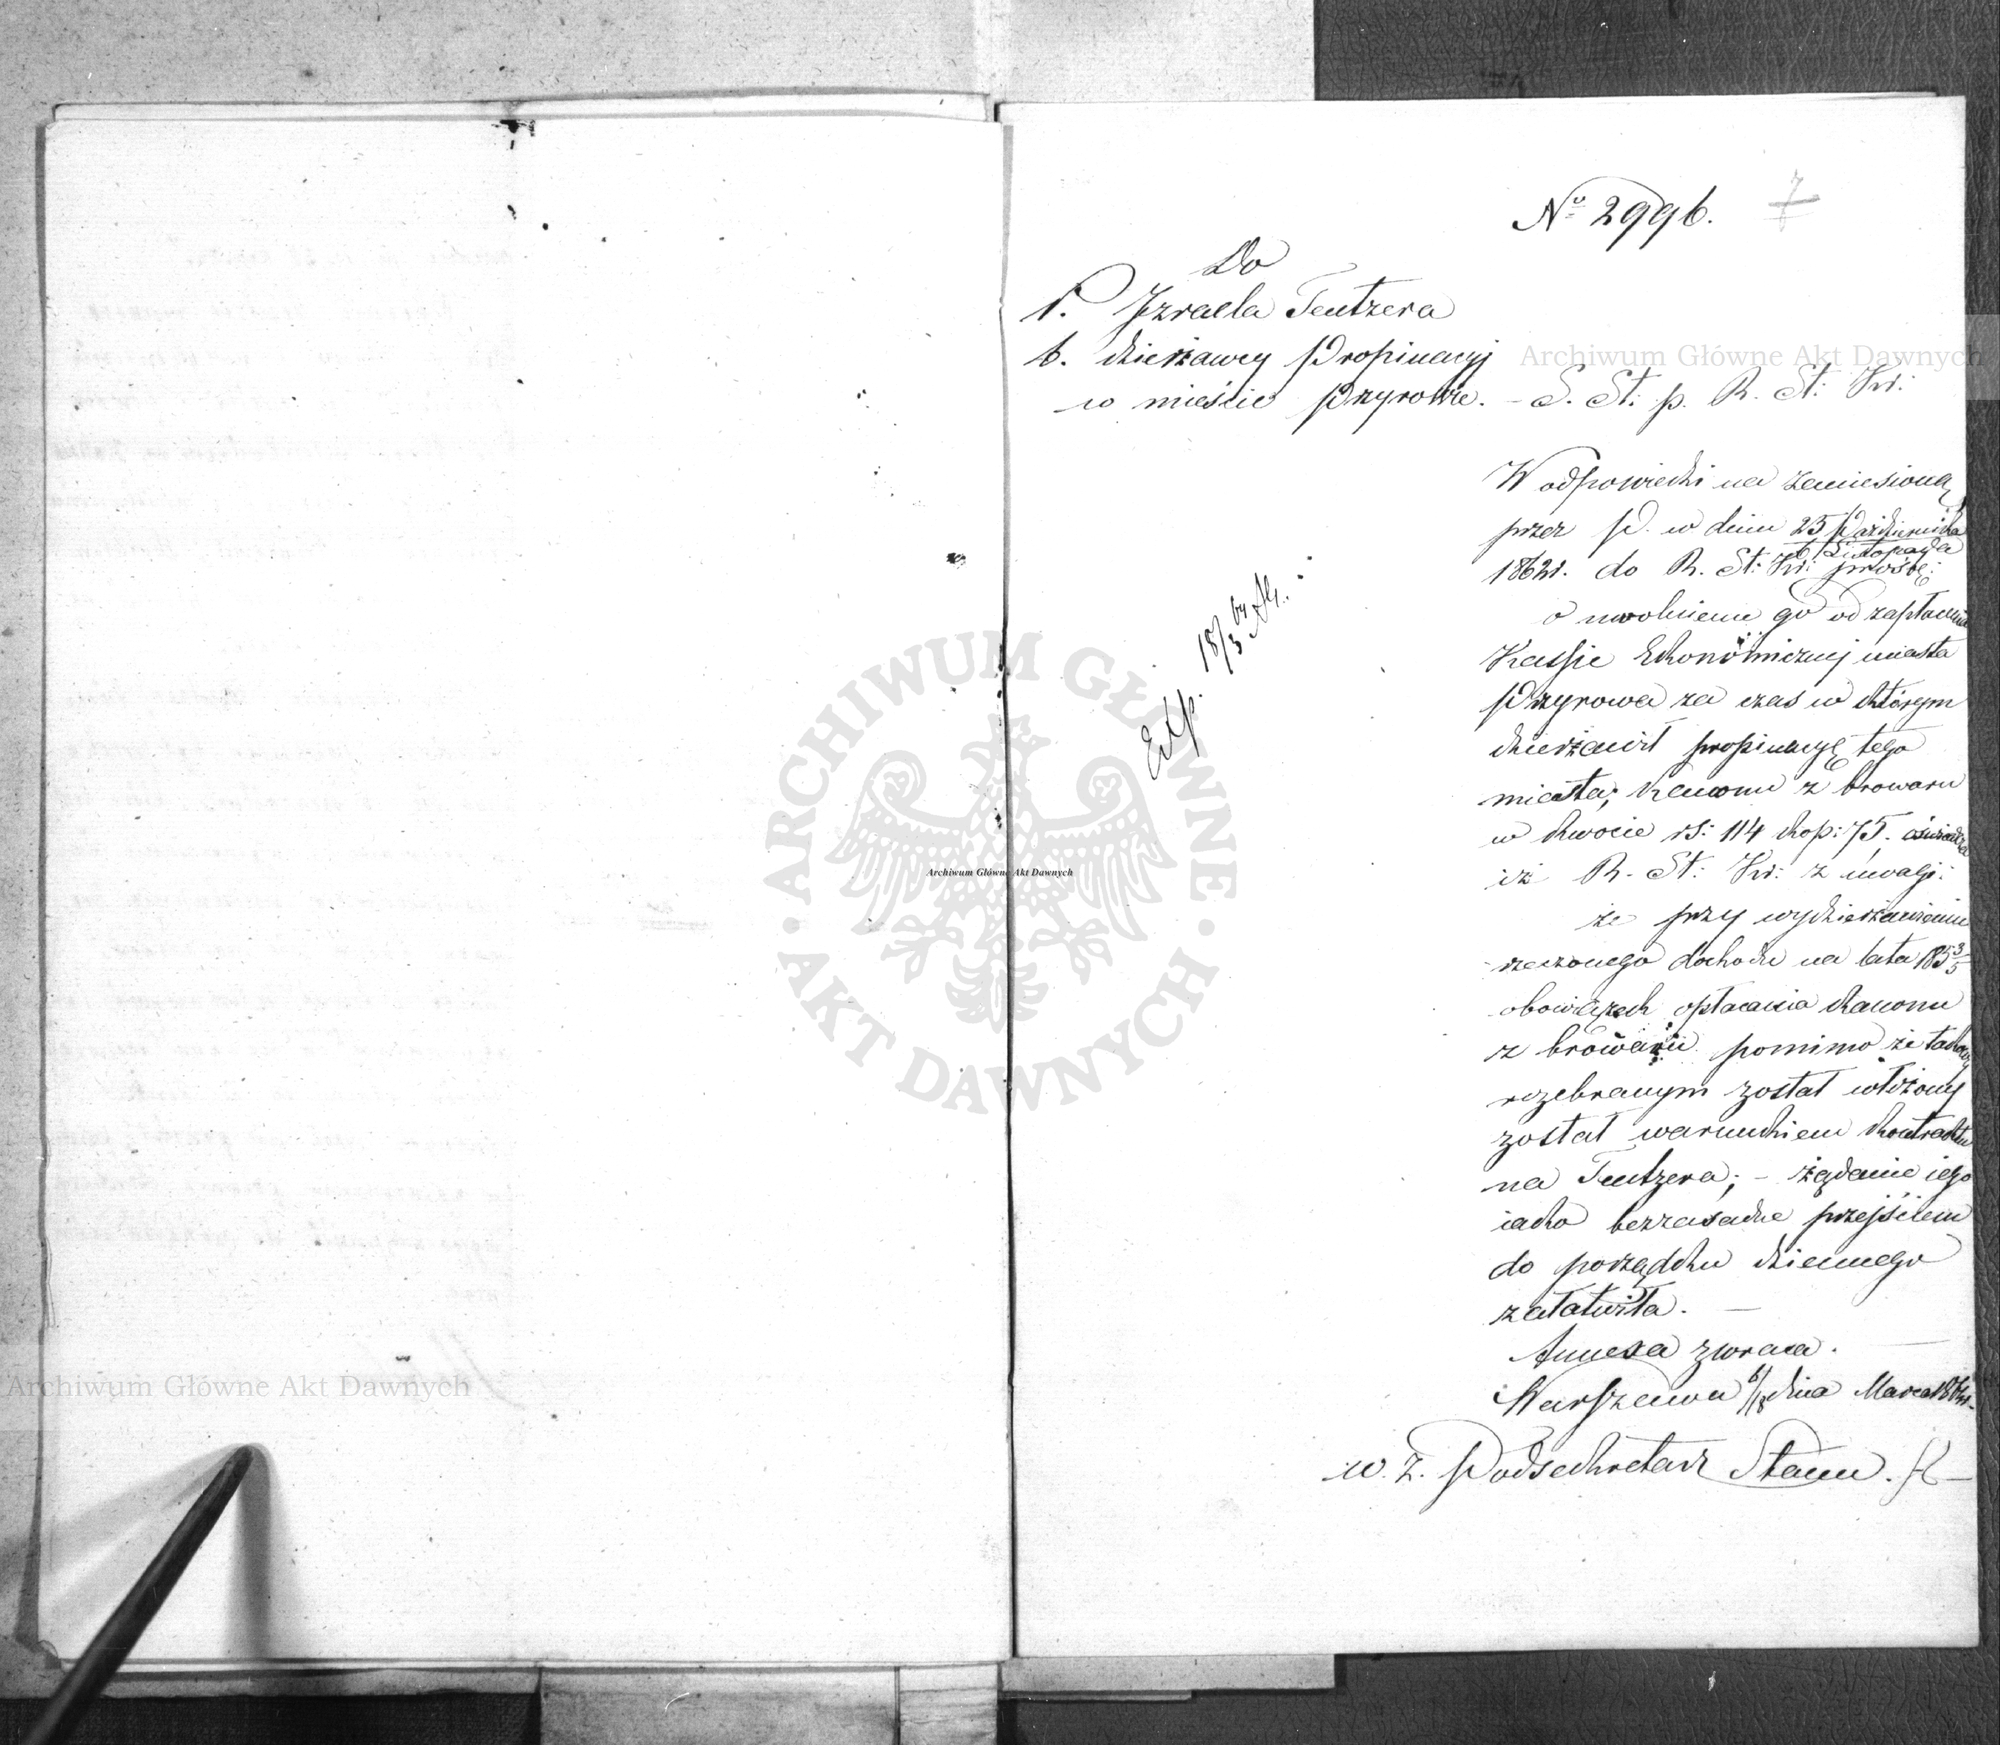 No 2996.
7
Do
P. Izraela Tentzera
b. dzierżawcy Propinacyj
w mieście Przyrowie. – S. St: p. R. St: Kr:
W odpowiedzi na zaniesioną
przez P. w dniu 25 Października
6 Listopada
1862 r. do R. St: Kr: prośbę:
o uwolnienie go od zapłacenia
Kassie Ekonomicznej miasta
Przyrowa za czas w którym
dzierżawił propinacyę tego
miasta, Kanonu z browaru
w kwocie rs: 114 kop: 75. oświadcza
iż R. St: Kr: z uwagi:
że przy wydzierżawieniu
rzeczonego dochodu na lata 185 3/5
obowiązek opłacania kanonu
z browaru pomimo że takowy
rozebranym został włożony
został warunkiem kontraktu
na Tentzera; – żądanie iego
iako bezzasadne przejściem
do porządku dziennego
załatwiła. –
Annexa zwraca. –
Warszawa 6/18 dnia Marca 1864 r.
w. z. Podsekretarz Stanu.
Exp. 18/3 64
Archiwum Główne Akt Dawnych
Archiwum Główne Akt Dawnych
Archiwum Główne Akt Dawnych
ARCHIWUM GŁÓWNE
AKT DAWNYCH